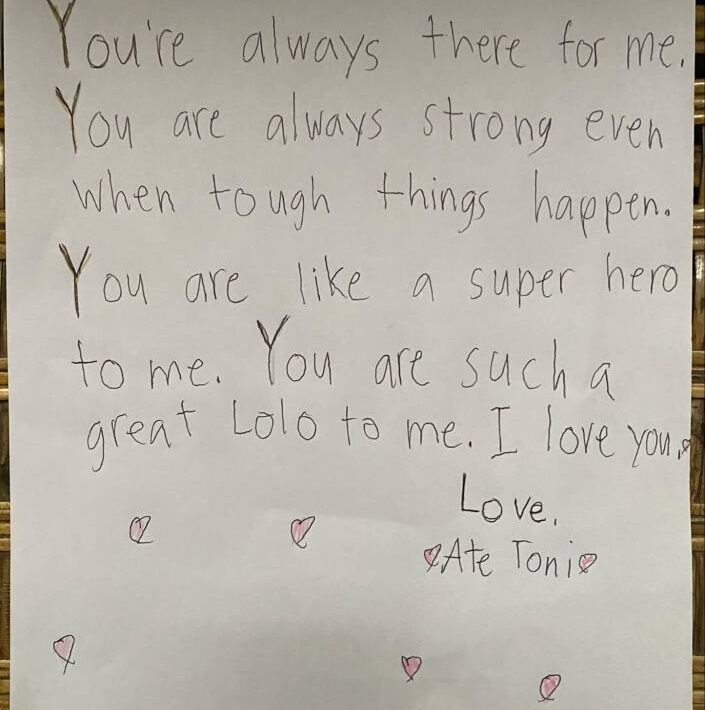 You're always there for me.
You are always strong even
when tough things happen.
You are like a super hero
to me. You are such a
great Lolo to me. I love you.
Love,
Ate Toni